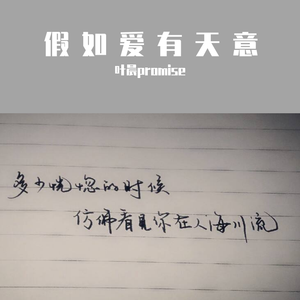 假如爱有天意
叶晨promise
多少恍惚的时候
仿佛看见你在人海川流